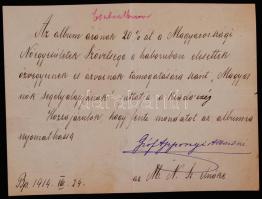 Az album árának 20%-át a Magyarországi
Nőegyesületek Szövetsége a háborúban elesettek
özvegyeinek és árváinak támogatására szánt „Magyar
nők segélyalapjának" juttat a Kiadóség
Hozzájárulok, hogy fenti mondatot az albumra
nyomathassa
Gróf Apponyi Albertné
az M. N. Sz. elnöke
Bp. 1914. 24.